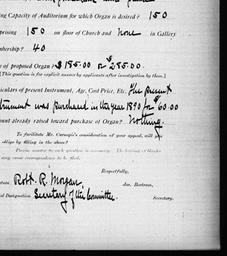 ing Capacity of Auditorium for which Organ is desired? 150
prising 150 on floor of Church and none in Gallery
mbership? 40
of proposed Organ? $185.00 or $255.00
[This question is for explicit answer by applicants after investigation by them.]
ticulars of present Instrument, Age, Cost Price, Etc. The present
trument was purchased in the year 1890 for $60.00
ount already raised toward purchase of Organ? Nothing.
To facilitate Mr. Carnegie's consideration of your appeal, will
oblige by filling in the above?
Respectfully,
Robt. R. Morgan, Jas. Bertram,
Designation Secretary of the Committee. Secretary.